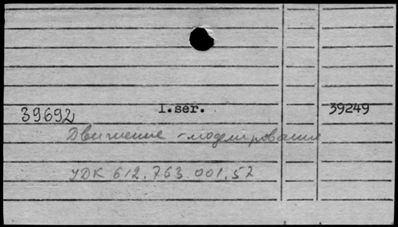 39692 1.ser. 39249
Движение - моделирование
УДК 612.763.001.57